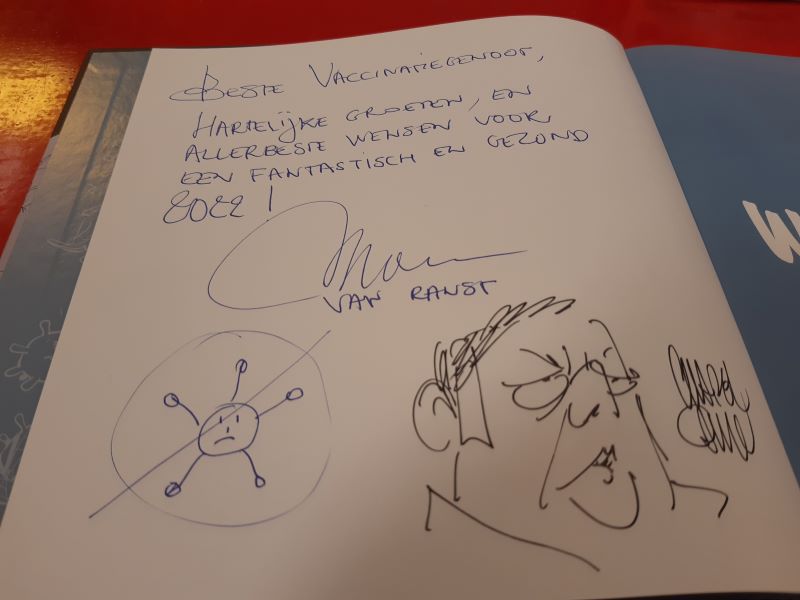 BESTE VACCINATIEGENOOT,
HARTELIJKE GROETEN, EN
ALLERBESTE WENSEN VOOR
EEN FANTASTISCH EN GEZOND
2022!
VAN RANST
W